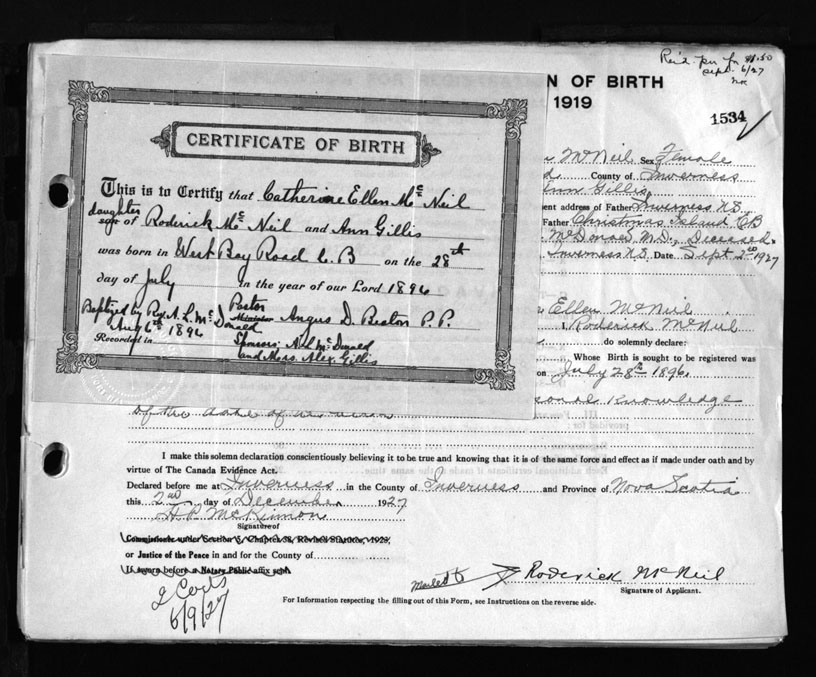 Rec'd per for $1.50
Sept. 6/27
N OF BIRTH
1919
1534
McNeil Sex Female
County of Inverness
Ann Gillis
sent address of Father Inverness N.S.
Father Christmas Island CB
McDonald M.D., Deceased
Inverness N.S. Date Sept 2nd 1927
CERTIFICATE OF BIRTH
This is to Certify that Catherine Ellen Mc Neil
daughter
son of Roderick Mc Neil and Ann Gillis
was born in West Bay Road C.B on the 28th
day of July in the year of our Lord 1896
Baptized by Rev. A. L. McDonald
Aug 6th 1896
Pastor
Minister Angus D. Beaton P.P.
Recorded in
Sponsors A. L McDonald
and Mrs. Alex. Gillis
Ellen McNeil
Roderick McNeil
do solemnly declare:
Whose Birth is sought to be registered was
on July 28th 1896.
Knowledge
of the date of
I make this solemn declaration conscientiously believing it to be true and knowing that it is of the same force and effect as if made under oath and by
virtue of The Canada Evidence Act.
Declared before me at Inverness in the County of Inverness and Province of Nova Scotia
this 2nd day of December 1927
McKinnon
Signature of
Commissioner under Section 5, Chapter 38, Revised Statutes, 1923,
or Justice of the Peace in and for the County of
If sworn before a Notary Public affix seal.
2 Certs
6/9/27
Roderick McNeil
Signature of Applicant.
For Information respecting the filling out of this Form, see Instructions on the reverse side.